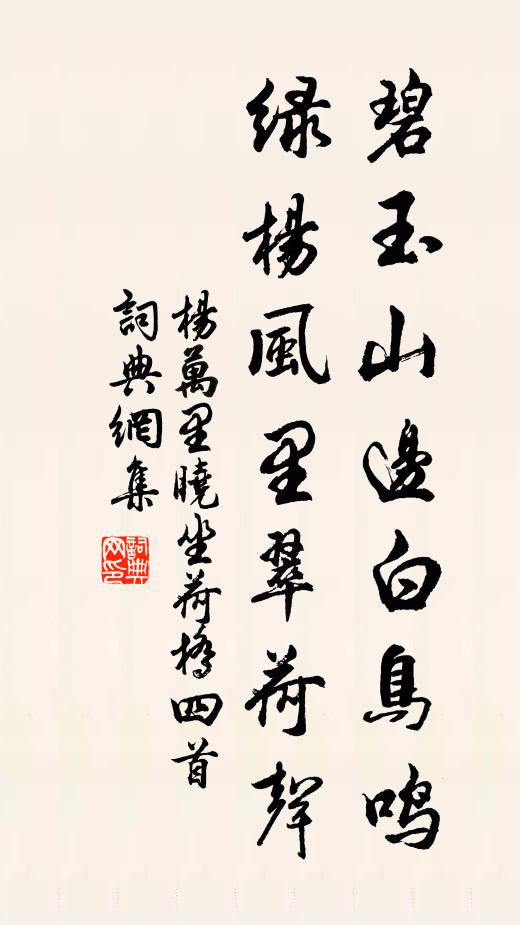 碧玉山邊白鳥鳴
綠楊風里翠荷聲
楊萬里曉坐荷橋四首
詞典網集
詞典网印